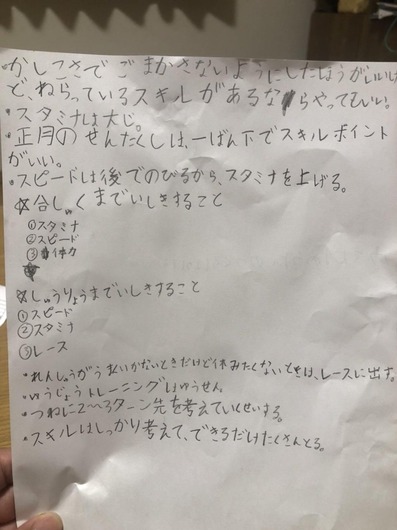 ・かしこさでごまかさないようにしたほうがいいけ
ど、ねらっているスキルがあるならやってもいい。
・スタミナは大じ。
・正月のせんたくしは、一ばん下でスキルポイント
がいい。
・スピードは後でのびるから、スタミナを上げる。
☆合しゅくまでいしきすること
①スタミナ
②スピード
③体力
☆しゅうりょうまでいしきすること
①スピード
②スタミナ
③レース
・れんしゅうがうまいかないときだけど休みたくないときは、レースに出す。
・ゆうじょうトレーニングはゆうせん。
・つねに2〜3ターン先を考えていくせいする。
・スキルはしっかり考えて、できるだけたくさんとる。